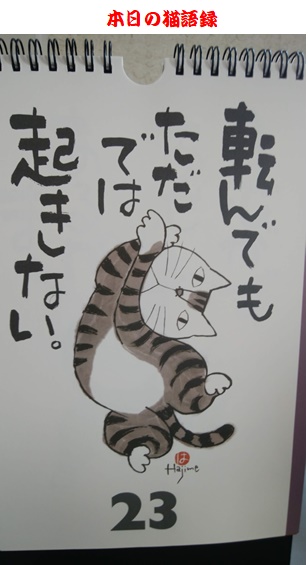 本日の猫語録
転んでも
ただ
では
起きない。
は
Hajime
23